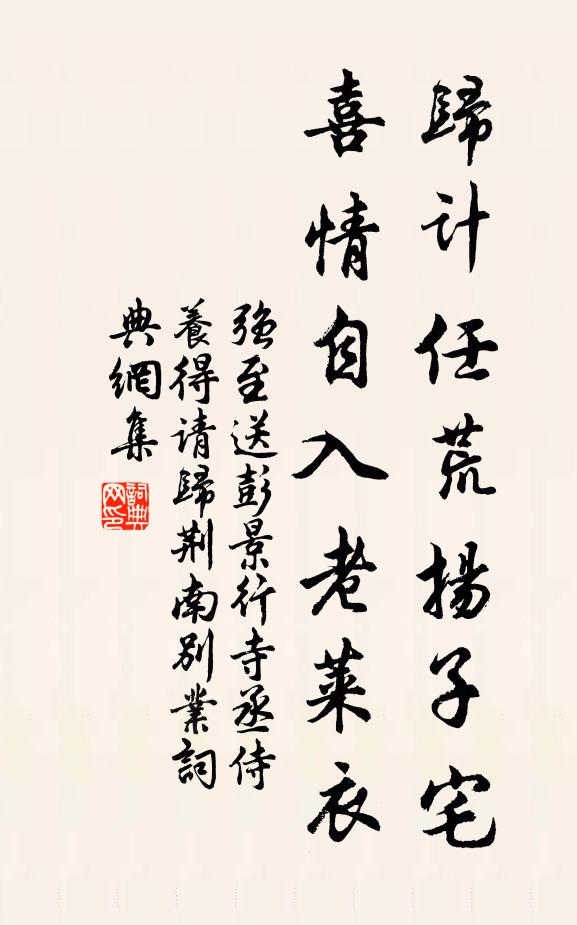 歸計任荒揚子宅
喜情自入老萊衣
強至送彭景行寺丞侍
養得请歸荆南别業詞
典網集
詞典网印